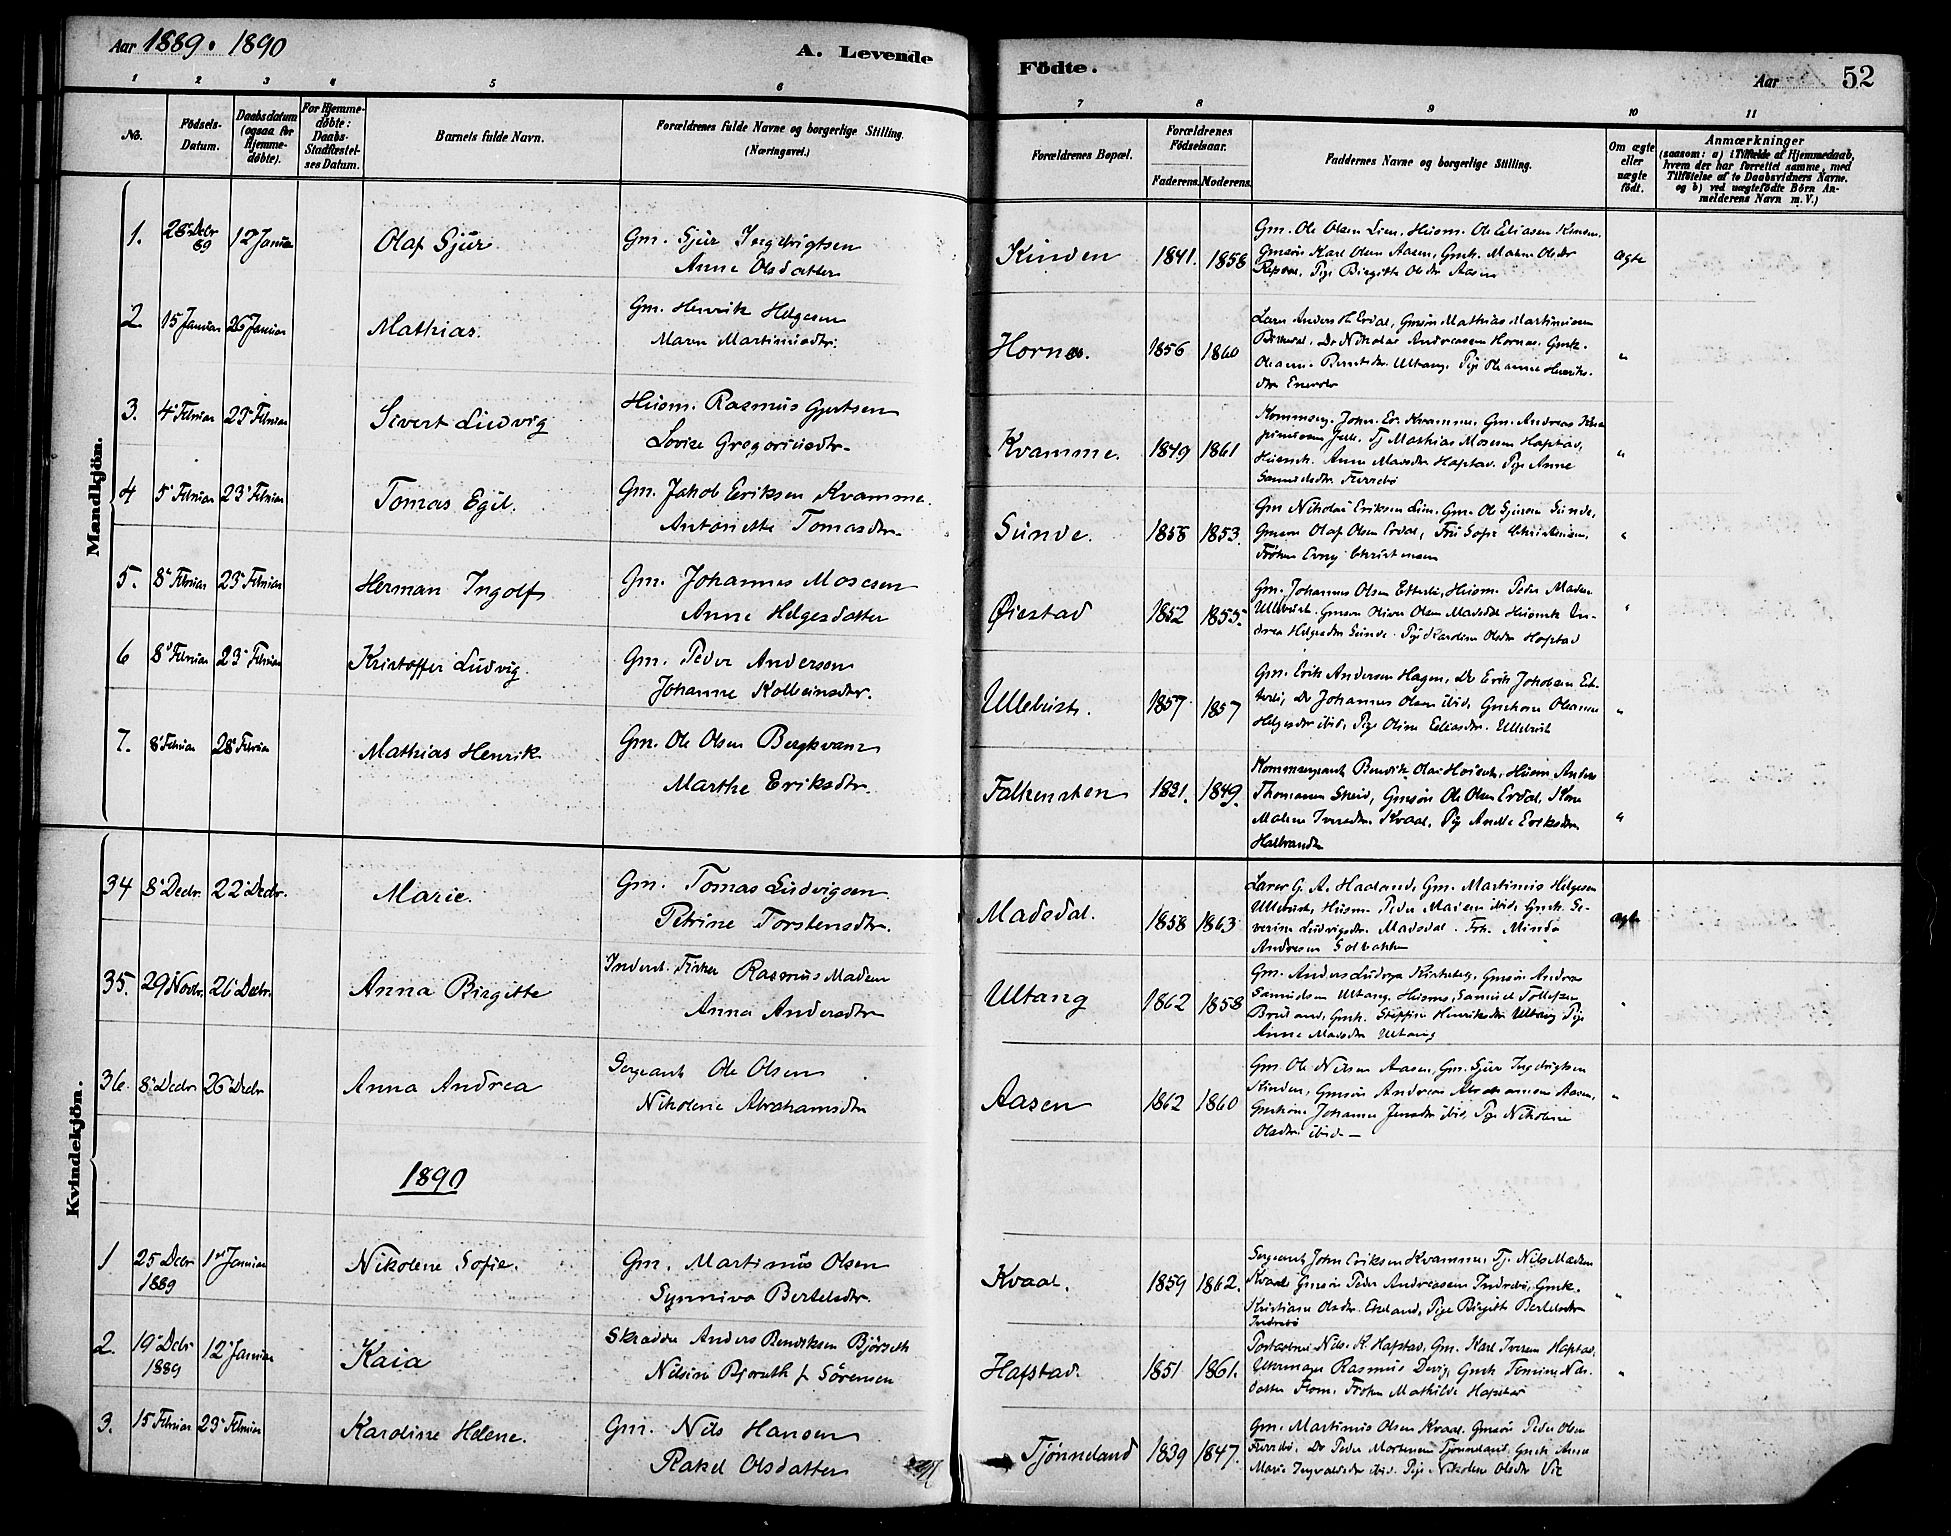 Aar 1889. 1890
A. Levende Födte.
Aar
52
1 2 3 4 5 6 7 8 9 10 11
No.
Födsels-Datum.
Daabsdatum (ogsaa for Hjemme-døbte).
For Hjemme-døbte: Daabs-Stadfæstel-ses Datum.
Barnets fulde Navn.
Forældrenes fulde Navne og borgerlige Stilling.
(Næringsvei.)
Forældrenes Bopæl.
Forældrenes Födselsaar.
Faderens. Moderens.
Faddernes Navne og borgerlige Stilling.
Om ægte eller uægte født.
Anmærkninger
(saasom: a) i Tilfælde af Hjemmedaab,
hvem der har forrettet samme, med
Tilföielse af to Daabsvidners Navne.
og b) ved uægtefödte Börn An-
melderens Navn m. V.)
Mandkjön.
1. 28 Decbr 89 12 Januar Olaf Sjur Gm. Sjur Ingebrigtsen
Anne Olsdatter
Kinden 1841. 1858
Gm. Ole Olsen Lien, Husm. Ole Eliasen
Gmsøn Karl Olsen Aasen, Gmk. Malene Olsdtr
Pige Birgitte Olsdtr Aasen
ægte
2. 15 Januar 26 Januar Mathias. Gm. Henrik Helgesen
Maren Martinusdtr.
Hornæs. 1856 1860
Lærer Anders H. Erdal, Gmsøn Mathias Martinusen
Do Nikolai Andreasen Hornæs, Gmk.
Oleanne Berntsdtr. Ultang, Pige Oleanne Henriks-
dtr
"
3. 4 Februar 23 Februar Sivert Ludvig Husm. Rasmus Gjertsen
Lovise Gregoriusdtr.
Kvamme. 1849 1861
John Er. Kvamme, Gm. Andreas
Tj Mathias Mosesen Hafstad,
Anne Madsdtr Hafstad. Pige Anne
Samuelsdtr. Furebø
"
4 5 Februar 23 Februar Tomas Egil. Gm. Jakob Eriksen Kvamme.
Antonette Tomasdtr.
Sunde. 1858 1853.
Gm Nikolai Eriksen Lien, Gm. Ole Sjursen Sunde,
Gmsøn Olaf Olsen Erdal, Fru Sofie Christensen,
Frøken Christensen
"
5. 8 Februar 23 Februar Herman Ingolf Gm. Johannes Mosesen
Anne Helgesdatter
Øiestad 1852 1855.
Gm. Johannes Olsen Etterli, Husm. Peder Madsen
Ullebust. Gmsøn Oliver Olsen Madsdal Husmk An-
drea Helgesdtr Sunde. Pige Karoline Olsdtr Hafstad
"
6 8 Februar 23 Februar Kristoffer Ludvig. Gm. Peder Andersen
Johanne Kolbeinsdtr.
Ullebust. 1857 1857
Gm. Erik Andersen Hagen, Do Erik Jakobsen Et-
terli, Do Johannes Olsen ibid, Gmkone Oleanne
Helgesdtr ibid, Pige Oline Eliasdtr. Ullebust
"
7. 8 Februar 28 Februar Mathias Henrik Gm. Ole Olsen Bergkvam
Marthe Eriksdtr.
Falkensten 1831. 1849.
Bendik Olai Husm. Anders
Thomasen Skeid, Gmsøn Ole Olsen Erdal, Kone
Malene Iversdtr. Kvaal, Pige Anette Eriksdtr
"
Kvindekjön.
34 8 Decbr. 22 Decbr. Marie. Gm. Tomas Ludvigsen
Petrine Torstensdtr.
Madsdal. 1858 1863
Lærer G. A. Haaland, Gm. Martinus Helgesen
Ullebust, Husm. Peder Madsen ibid, Gmk. Se-
verine Ludvigsdtr. Madsdal. Frk. Minda
Andresen Solbakken
ægte
35. 29 Novbr. 26 Decbr. Anna Birgitte Inderst. Fisker Rasmus Madsen
Anna Andersdtr
Ultang 1862 1858
Gm. Anders Ludvigsen Kirkebø, Gmsøn Andreas
Samuelsen Ultang, Husm. Samuel Tollefsen
Bruland, Gmk. Steffine Henriksdtr Ultang Pige
Anne Madsdtr Ultang
"
36. 8 Decbr 26 Decbr Anna Andrea Sergeant Ole Olsen
Nikoline Abrahamsdtr
Aasen 1862 1860
Gm Ole Nilsen Aasen, Gm. Sjur Ingebrigtsen
Kinden, Gmsøn Andreas Abrahamsen Aasen,
Gmkone Johanne Jensdtr ibid, Pige Nikoline
Olsdtr. ibid —
"
1890
1 25 Decbr 1889 1ste Januar Nikolene Sofie. Gm. Martinus Olsen
Synneva Bertelsdtr.
Kvaal. 1859 1862.
Sergeant John Eriksen Kvamme, Tj. Nils Madsen
Kvaal Gmsøn Peder Andreasen Indrebø, Gmk.
Kristiane Olsdtr. Eikeland, Pige Birgitte Bertelsdtr
Indrebø
"
2. 19 Decbr 1889 12 Januar Kaia Skrædder Anders Bendiksen Bjørseth
Nilsine Bjørseth f Sörensen
Hafstad. 1851 1861.
Nils K. Hafstad, Gm. Karl Iversen Hafstad,
Uhrmager Rasmus Devig, Gmk Tomine Nils-
datter Flom, Frøken Mathilde Hafstad
"
3. 15 Februar 23 Februar Karoline Helene. Gm. Nils Hansen
Rakel Olsdatter
Tjønneland 1839 1847.
Gm. Martinus Olsen Kvaal. Gmsøn Peder Olsen
Furebø, Do Peder Mortensen Tjønneland, Gmk Anne
Marie Ingvaldsdtr ibid. Pige Nikoline Olsdtr Vie